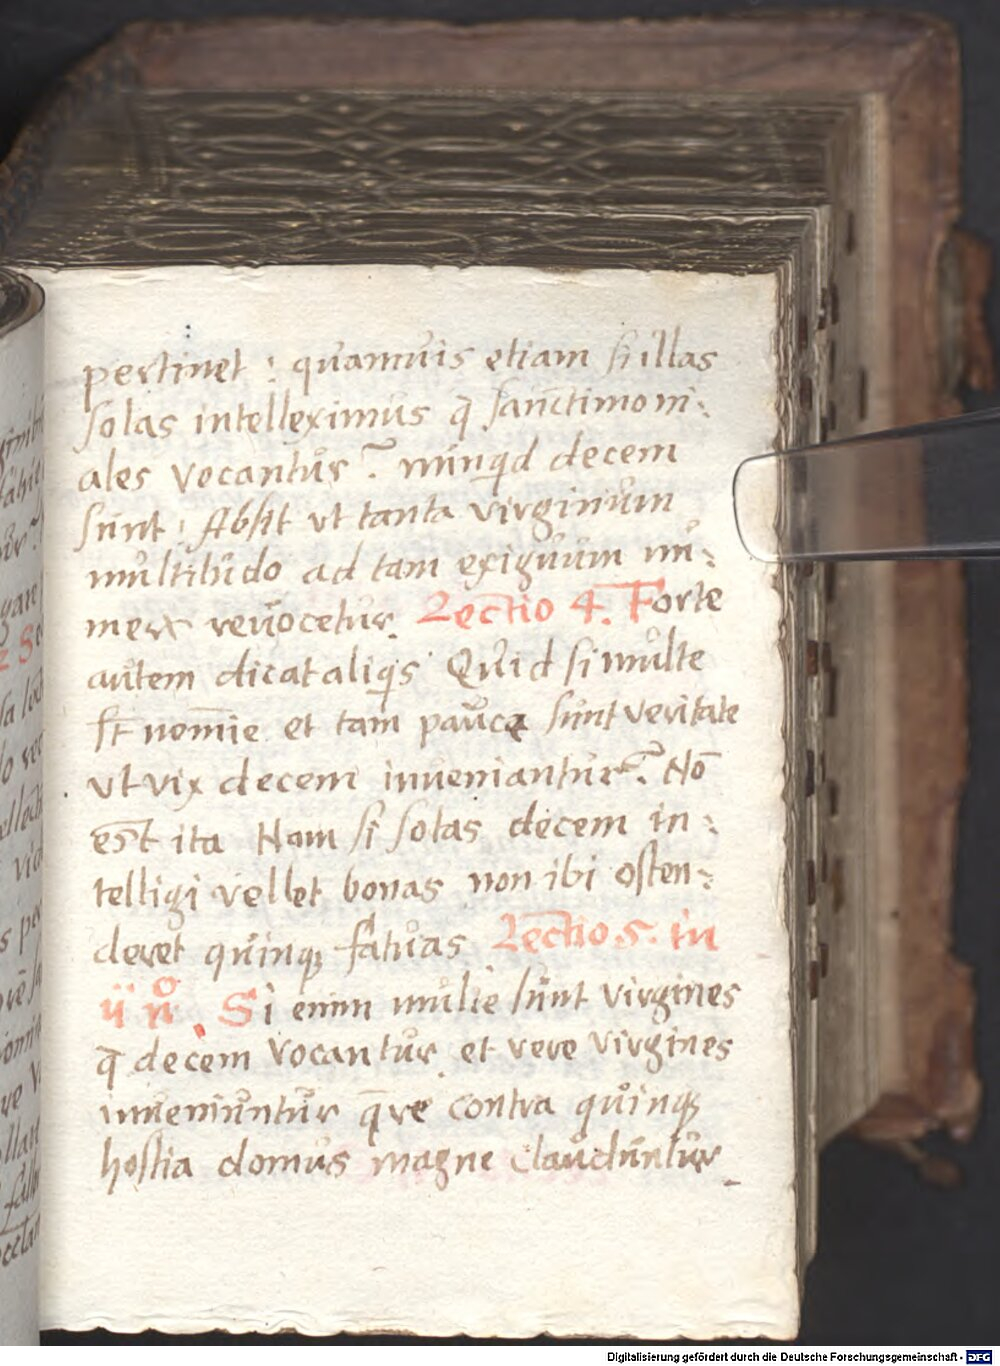 pertinet : quamuis etiam si illas
solas intelleximus q̄ sanctimoni:
ales vocantur? nunqd decem
sunt: Absit vt tanta virginum
multitudo ad tam exiguum nu:
meꝝ reuocetur. Lectio 4. Forte
autem dicat aliqis Quid si multe
st nomīe et tam pauce sunt veritate
vt vix decem inueniantur? Nō
est ita Nam si solas decem in:
telligi vellet bonas non ibi osten:
deret quinqꝫ fatuas Lectio 5. in
ij no. Si enim multe sunt virgines
q̄ decem vocantur et vere virgines
inueniuntur q̄re contra quinqꝫ
hostia domus magne clauduntur
Digitalisierung gefördert durch die Deutsche Forschungsgemeinschaft - DFG